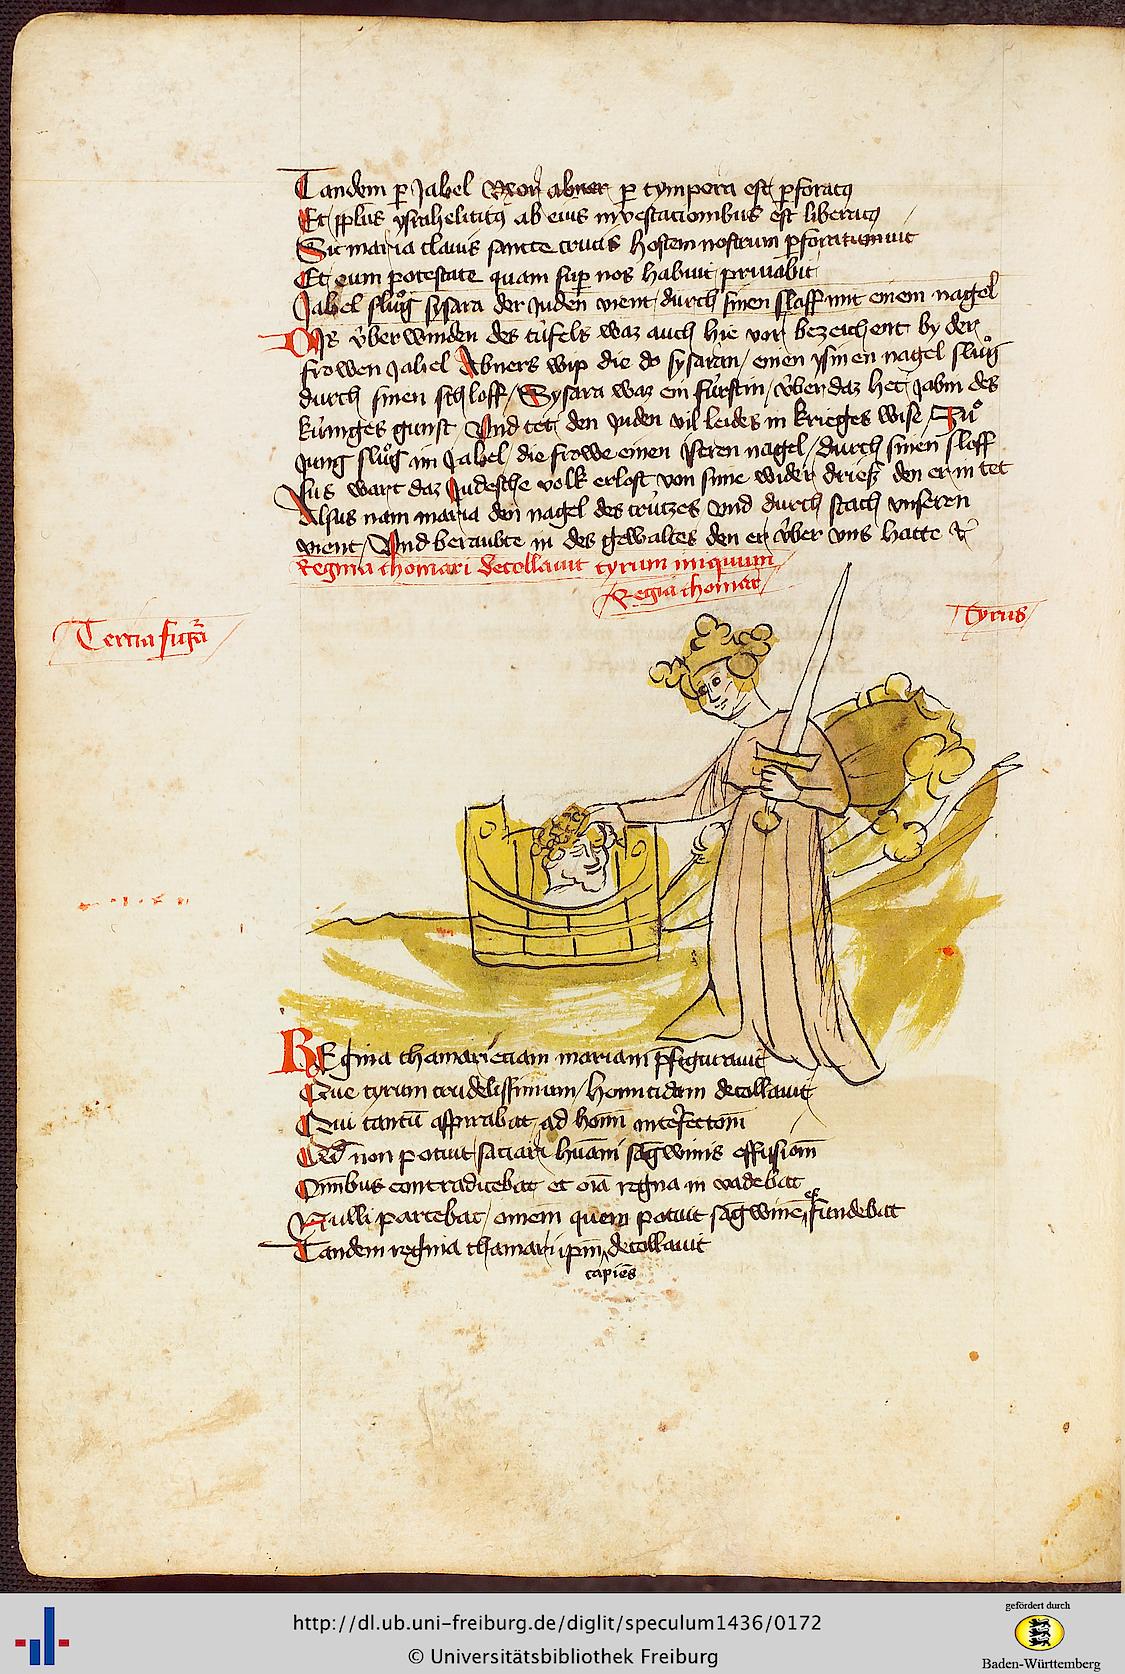 Tandem p Jabel Vxorē abner p tympora est pforatꝯ
Et pplūs ysrahelititꝯ ab eius investacionibus est liberatꝯ
Sic maria clauis sancte crucis hostem nostrum pforatum
Et eum potestate quam sup nos habuit priuabit
Jabel slůg sysara der Juden vient durch sinen slaff mit einem nagel
Dis v̊berwinden des tüfels waz auch hie vor bezeichent by der
frowen Jabel Abners wip die do sysaran einen ysinen nagel slůg
durch sinen schloff Sysara waz ein fürstin v̊ber daz het Jabin des
küniges gunst Vnd tet den Juden vil leides in krieges wise Zů
Jung slůg im Jabel die frowe einen yseren nagel durch sinen sloff
Sus wart daz Judesche volk erlost von sime widerdriesz den er in tet
Alsus nam maria den nagel des crützes vnd durch stach vnseren
vient Vnd beraubte in des gewaltes den er v̊ber vns hatte ꝛc
Regina thamari decollauit tyrum iniquum
Regia thomar
Tyrus
Tercia figa
REgina thamari eciam mariam pfigurauit
Que tyrum crudelissimum homicidam decollauit
Qui tantū aspirabat ad hoīm interfectoīm
Qd non potuit saciari huāni sāgwinis effusioīm
Omnibus contradicebat et oīa regna in vadebat
Nulli parcebat omēm quem potuit sāgwinē effundebat
Tandem regina thamari ipm capiēs decollauit
http://dl.ub.uni-freiburg.de/diglit/speculum1436/0172
© Universitätsbibliothek Freiburg
gefördert durch
Baden-Württemberg